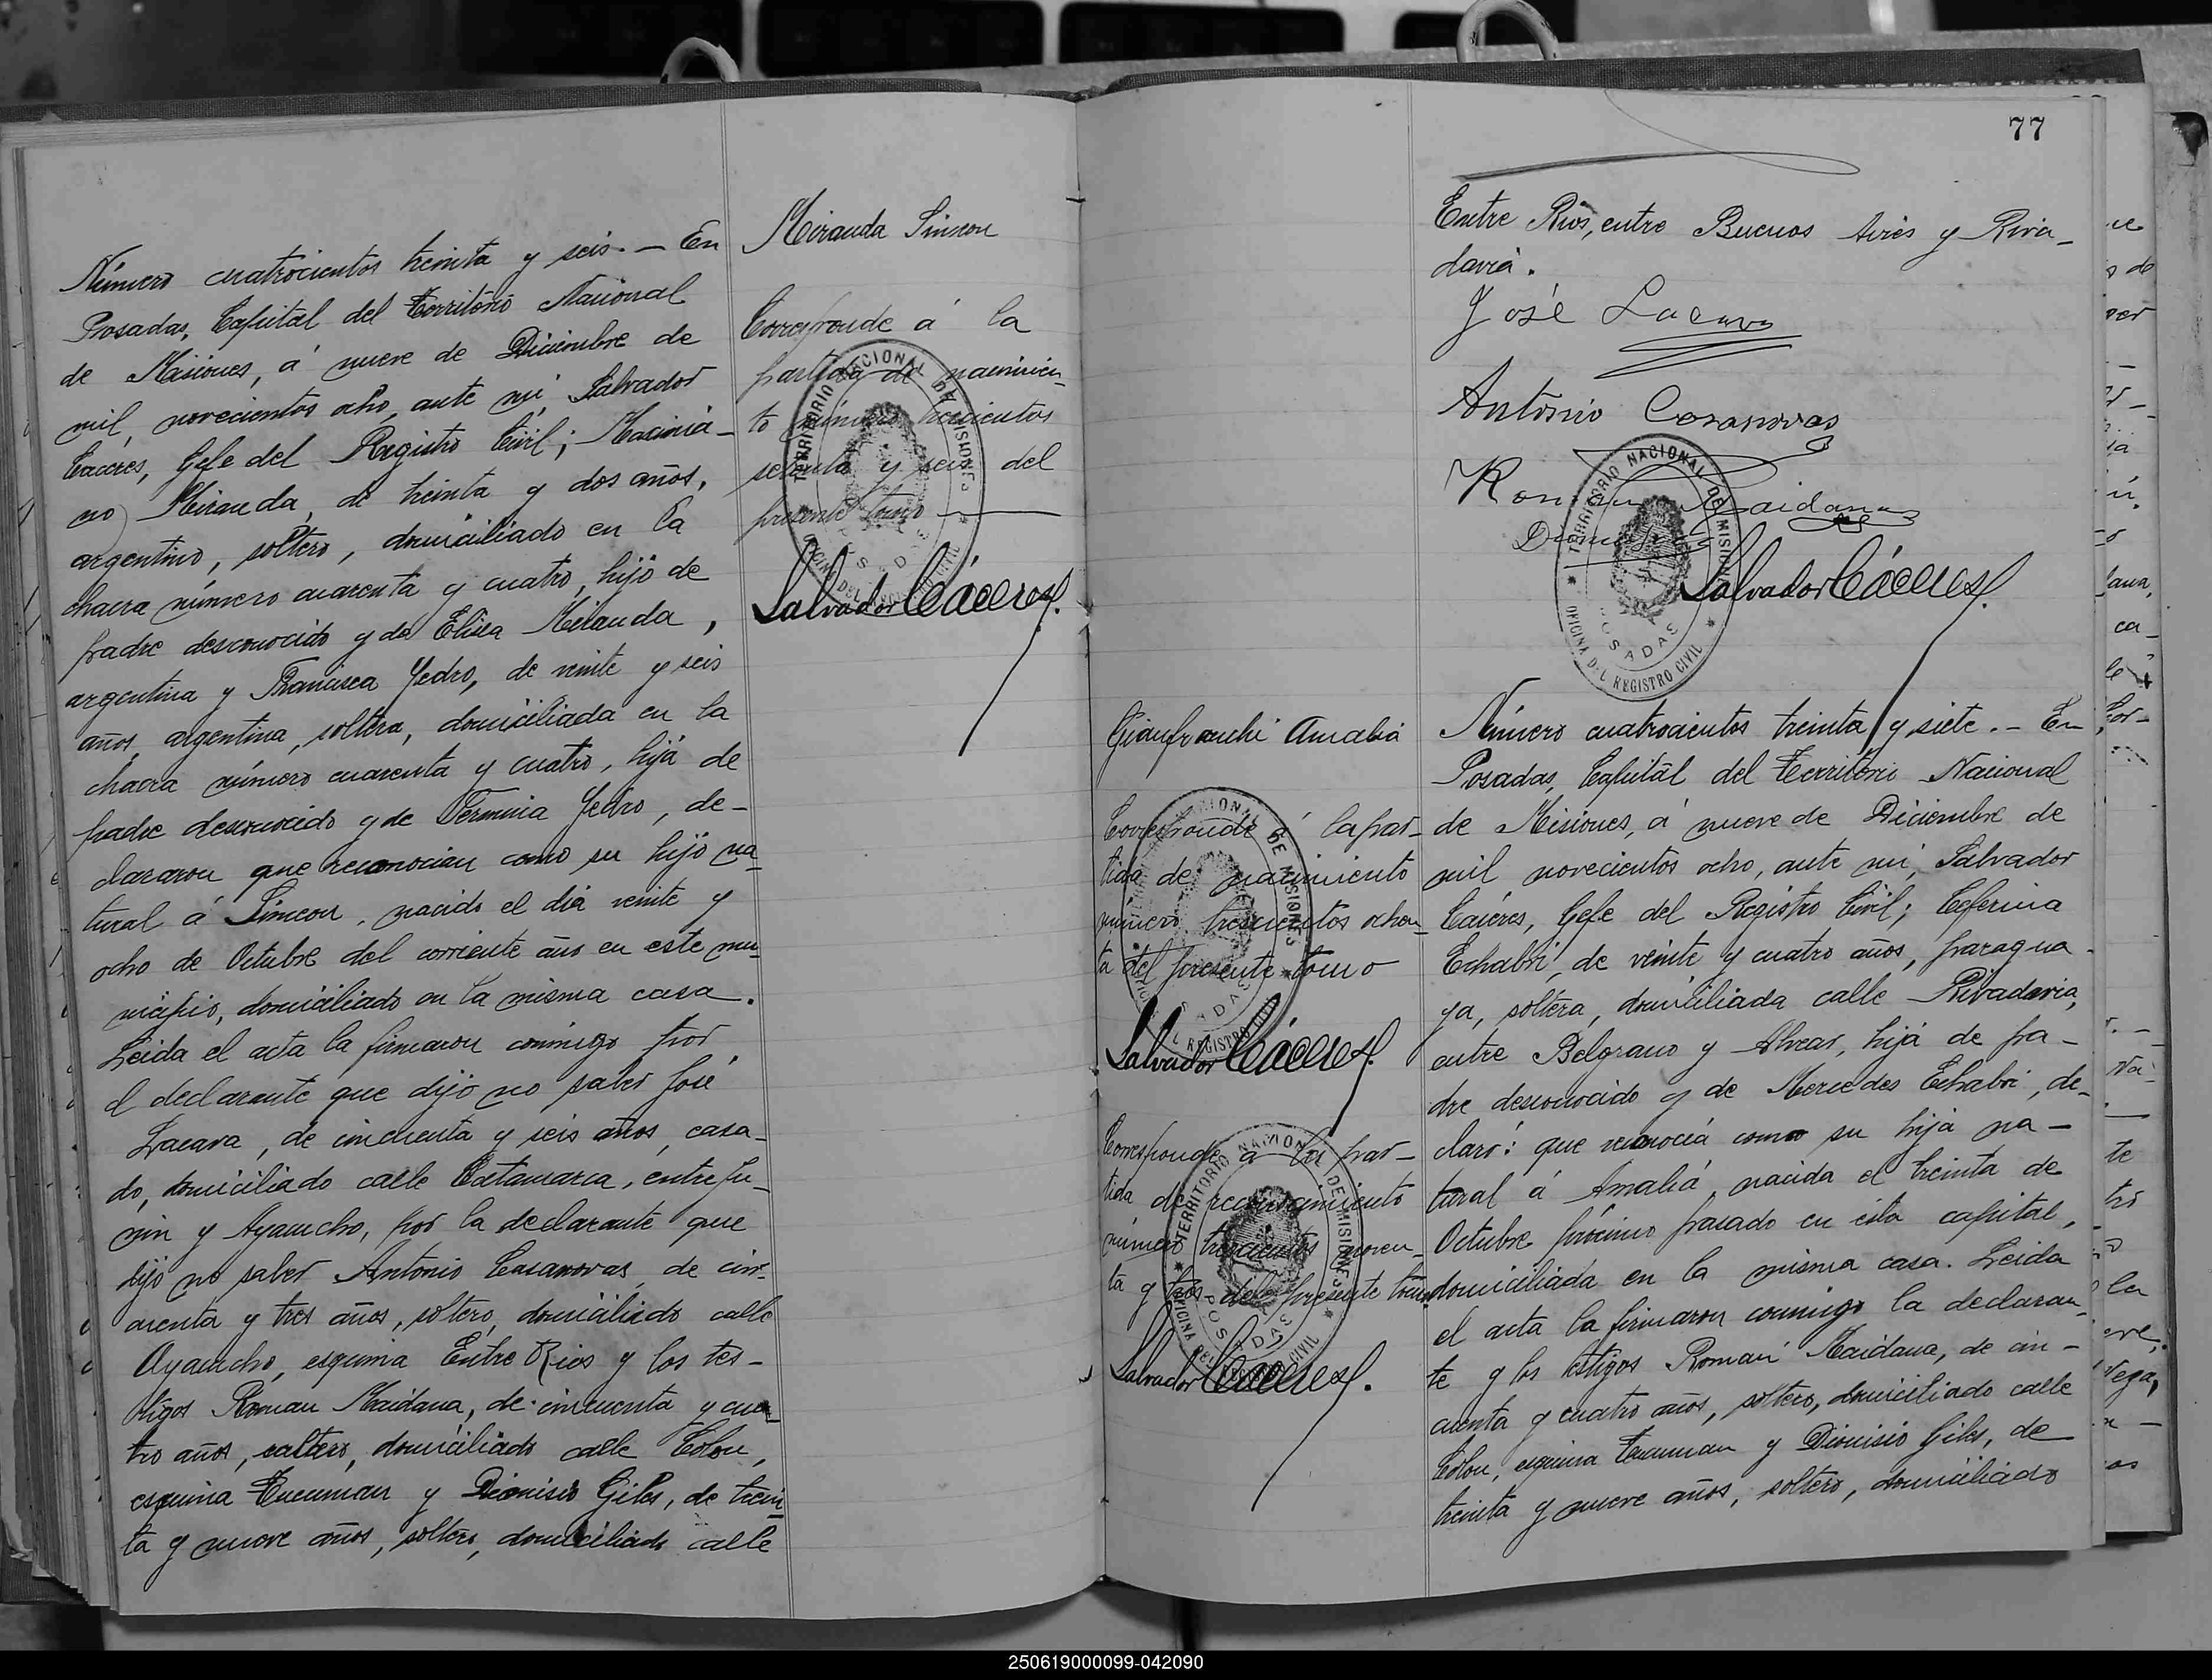 Número cuatrocientos treinta y seis. — En
Posadas, Capital del Territorio Nacional
de Misiones, á nueve de Diciembre de
mil novecientos ocho, ante mí, Salvador
Caceres, Gefe del Registro Civil; Maximia-
no Miranda, de treinta y dos años,
argentino, soltero, domiciliado en la
chacra número cuarenta y cuatro, hijo de
padre desconocido y de Elisea Miranda,
argentina y Francisca Yedro, de veinte y seis
años, argentina, soltera, domiciliada en la
chacra número cuarenta y cuatro, hija de
padre desconocido y de Fermina Yedro, de-
clararon que reconocian como su hijo na-
tural á Simeon, nacido el dia veinte y
ocho de Octubre del corriente año en este mu-
nicipio, domiciliado en la misma casa.
Leida el acta la firmaron conmigo por
el declarante que dijo no saber José
Lacava, de cincuenta y seis años, casa-
do, domiciliado calle Catamarca, entre Ju-
nin y Ayacucho, por la declarante que
dijo no saber Antonio Casanovas de cin-
cuenta y tres años, soltero, domiciliado calle
Ayacucho, esquina Entre Rios y los tes-
tigos Roman Maidana, de cincuenta y cua-
tro años, soltero, domiciliado calle Colon,
esquina Tucuman y Dionisio Giles, de trein-
ta y nueve años, soltero, domiciliado calle
Miranda Simeon
Corresponde á la
partida de nacimien-
to número trescientos
setenta y seis del
presente tomo
Salvador Cáceres
TERRITORIO NACIONAL DE MISIONES
OFICINA DEL REGISTRO CIVIL
POSADAS
77
Entre Rios, entre Buenos Aires y Riva-
davia.
José Lacava
Antonio Casanovas
Roman Maidana
Salvador Cáceres
TERRITORIO NACIONAL DE MISIONES
POSADAS
OFICINA DEL REGISTRO CIVIL
Gianfranchi Amalia
Corresponde á la par-
tida de nacimiento
número trescientos ochen-
ta del presente tomo
Salvador Cáceres
Corresponde á la par-
tida de reconocimiento
número trescientos noven-
ta y tres del presente tomo
Salvador Cáceres
TERRITORIO NACIONAL DE MISIONES
POSADAS
OFICINA DEL REGISTRO CIVIL
Número cuatrocientos treinta y siete. — En
Posadas, Capital del Territorio Nacional
de Misiones, á nueve de Diciembre de
mil novecientos ocho, ante mí, Salvador
Caceres, Gefe del Registro Civil; Ceferina
Echabri, de veinte y cuatro años, paragua-
ya, soltera, domiciliada calle Rivadavia,
entre Belgrano y Alvear, hija de pa-
dre desconocido y de Mercedes Echabri, de-
claró: que reconocia como su hija na-
tural á Amalia, nacida el treinta de
Octubre próximo pasado en esta capital,
domiciliada en la misma casa. Leida
el acta la firmaron conmigo la declaran-
te y los testigos Roman Maidana, de cin-
cuenta y cuatro años, soltero, domiciliado calle
Colon, esquina Tucuman y Dionisio Giles, de
treinta y nueve años, soltero, domiciliado
250619000099-042090